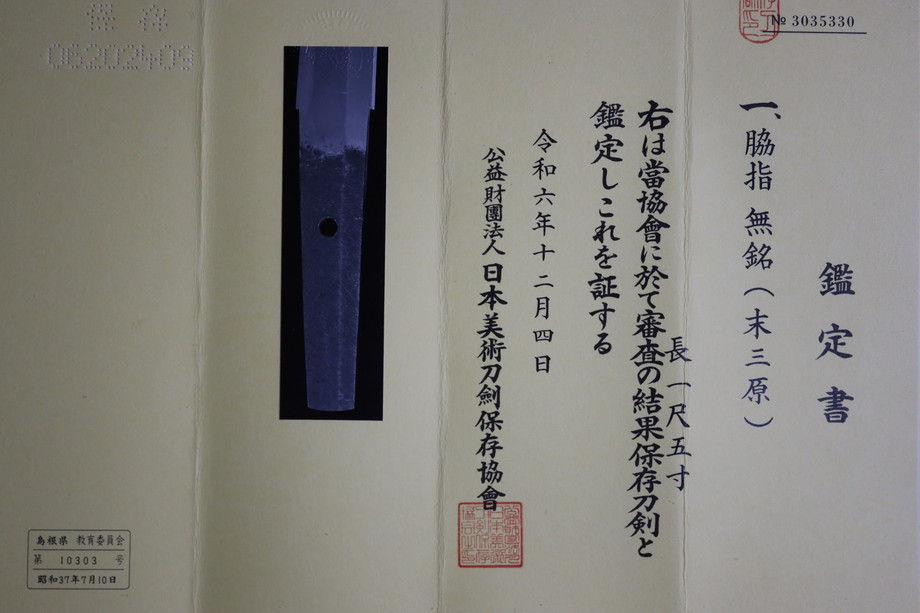 № 3035330
鑑定書
一、脇指 無銘（末三原）
長一尺五寸
右は當協會に於て審査の結果保存刀剣と
鑑定しこれを証する
令和六年十二月四日
公益財團法人日本美術刀劍保存協會
保存
06202409
島根県 教育委員会
第 10303 号
昭和37年7月10日